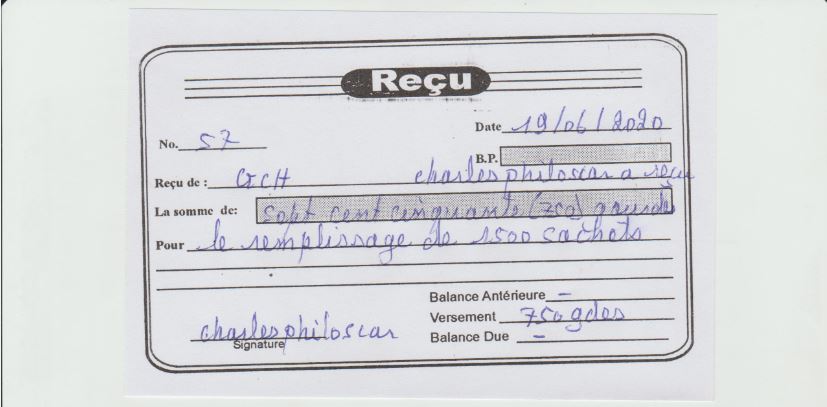 Reçu
Date 19/06/2020
No. 57
B.P.
Reçu de : GCH charles philoscar a reçu
La somme de: sept cent cinquante (750) gourdes
Pour le remplissage de 1500 sachets
Balance Antérieure –
Versement 750 gdes
Balance Due –
charles philoscar
Signature